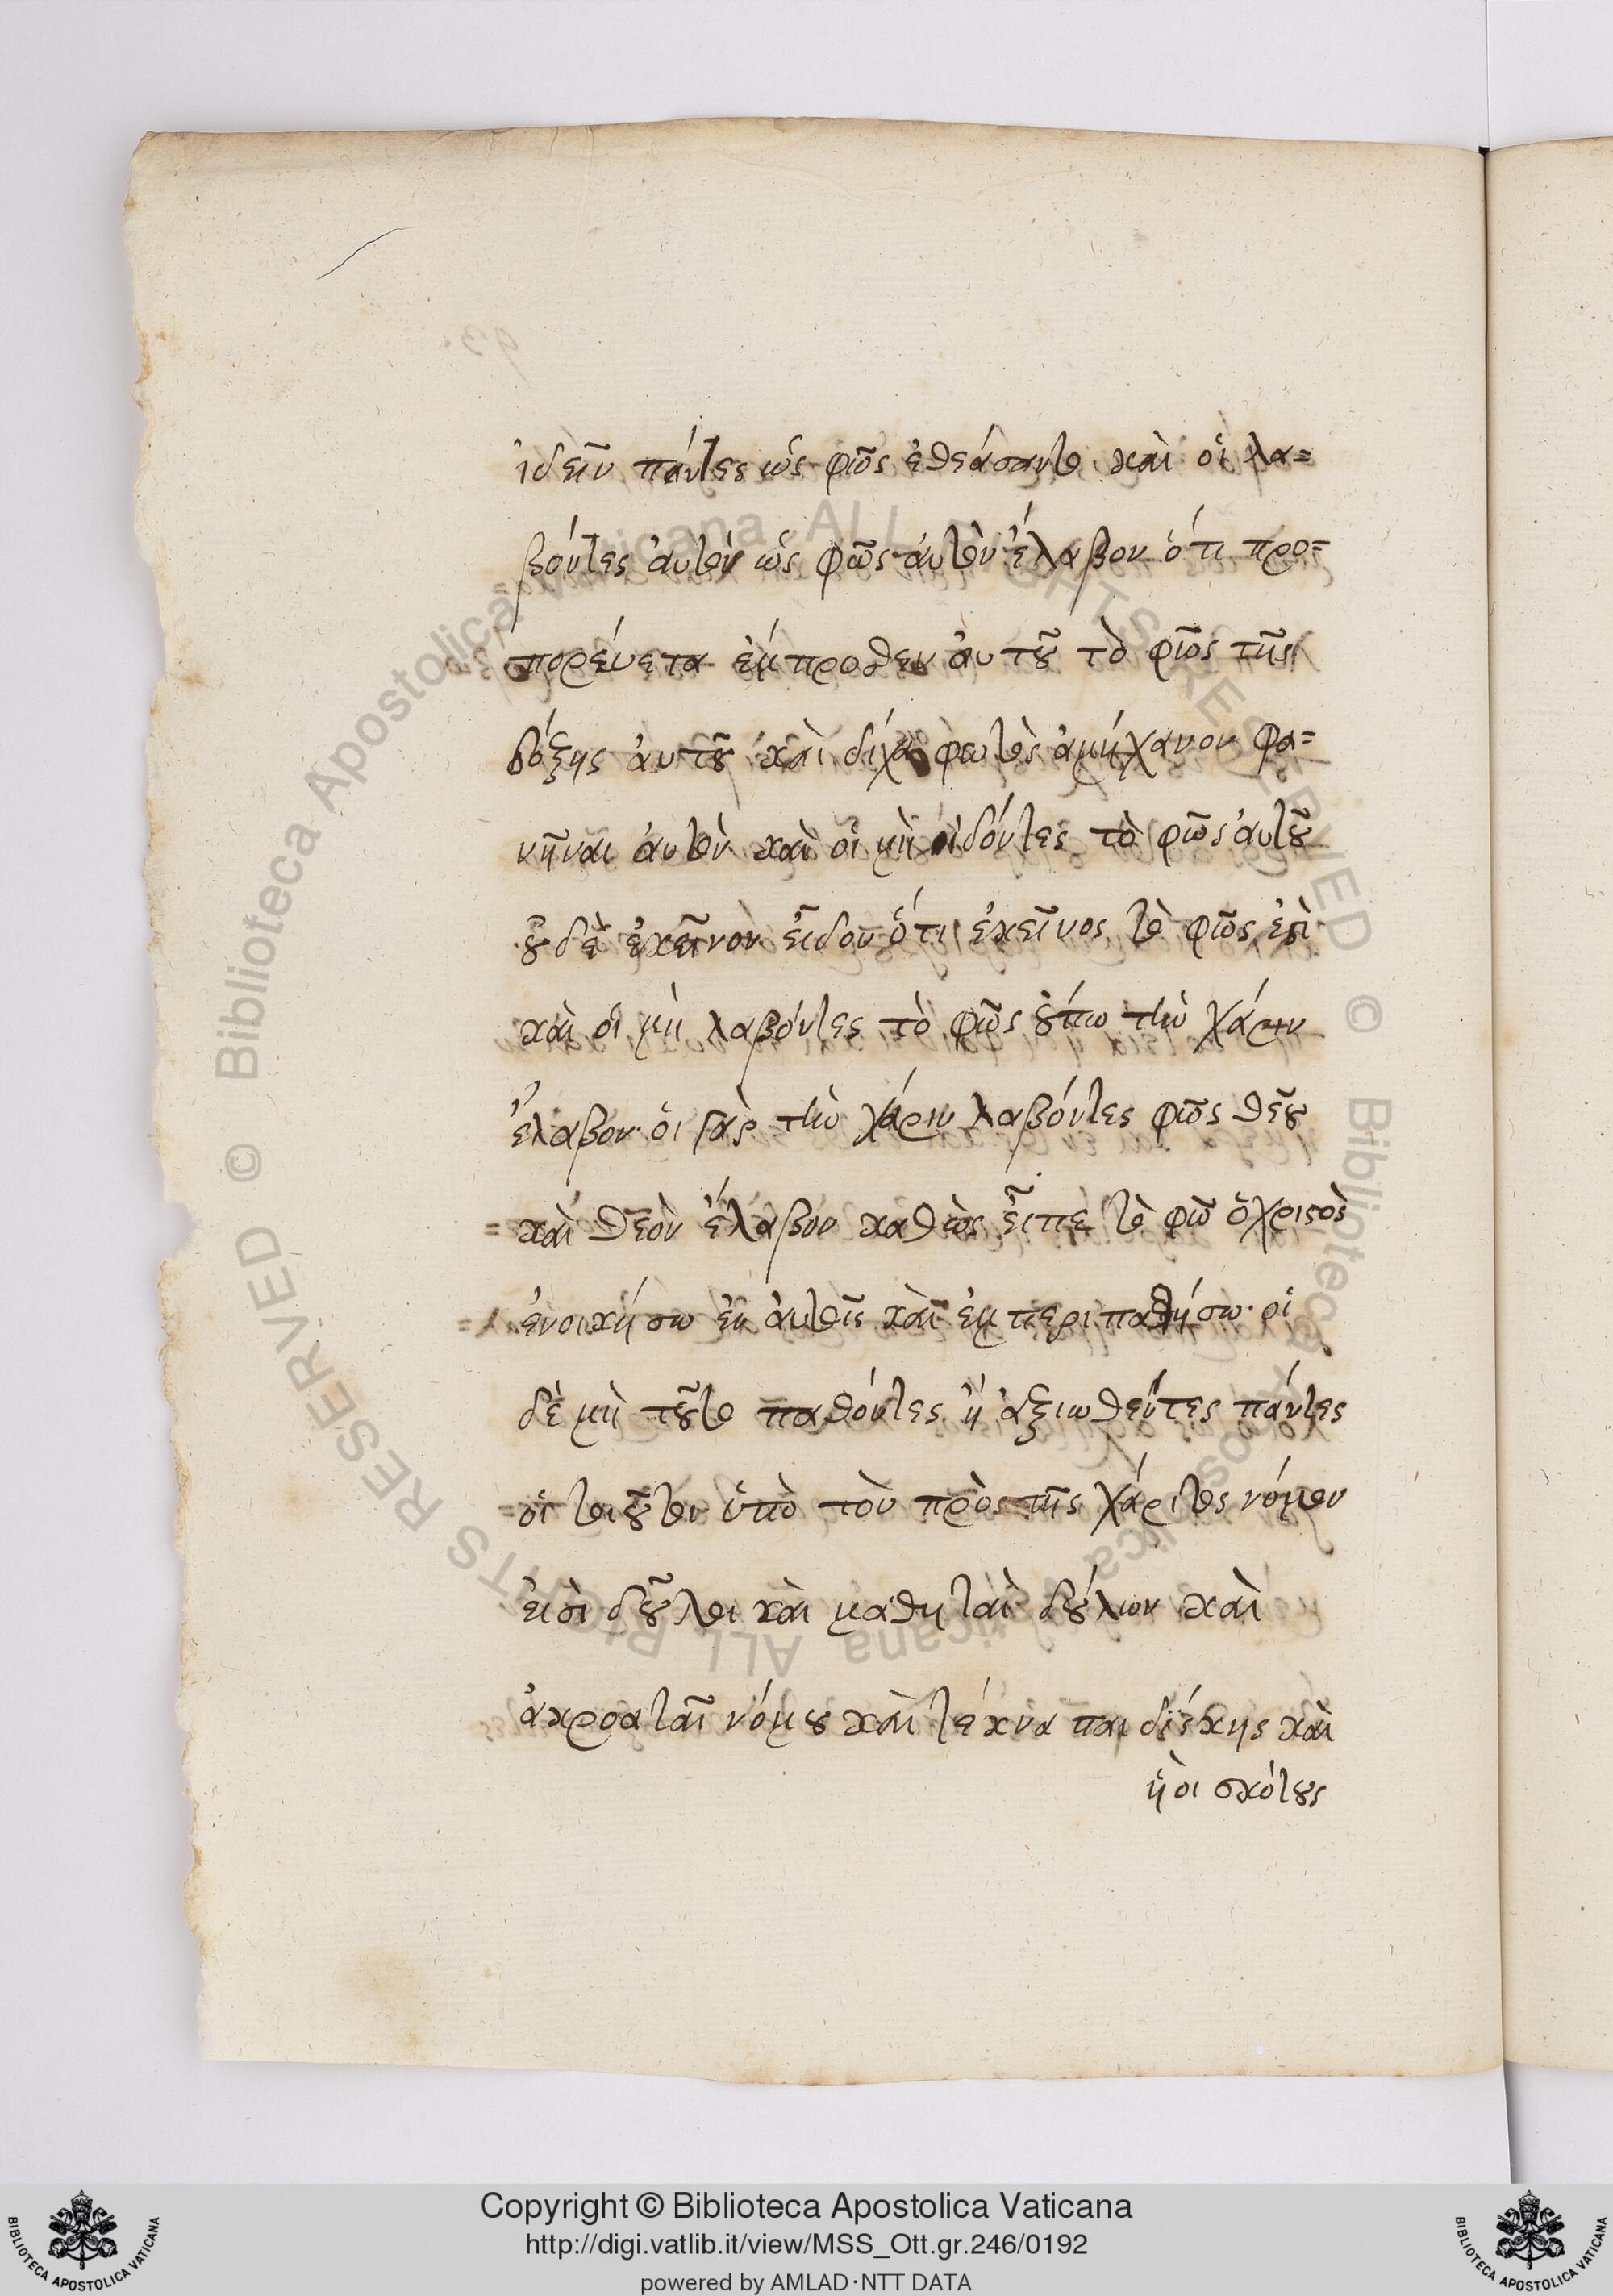 ἰδεῖν πάντες ὡς φῶς ἐθεάσαντο καὶ οἱ λα=
βόντες ἀυτὸν ὡς φῶς ἀυτὸν ἔλαβον ὅτι προ=
πορέυεται ἔμπροθεν ἀυτοῦ τὸ φῶς τῆς
δόξης ἀυτοῦ καὶ δίχα φωτὸς ἀμήχανον φα=
νῆναι ἀυτὸν καὶ οἱ μὴ ἰδόντες τὸ φῶς ἀυτοῦ
οὐδὲ ἐκεῖνον εἶδον ὅτι ἐκεῖνος τὸ φῶς ἐστὶ
καὶ οἱ μὴ λαβόντες τὸ φῶς οὔπω τὴν χάριν
ἔλαβον· οἱ γὰρ τὴν χάριν λαβόντες φῶς θεοῦ
καὶ θεὸν ἔλαβον καθὼς εἶπε τὸ φῶ ὁ χριστὸς
ἐνοικήσω ἐν ἀυτοῖς καὶ ἐμπεριπατήσω· οἱ
δὲ μὴ τοῦτο παθόντες ἢ ἀξιωθέντες πάντες
οἱ τοιοῦτοι ὑπὸ τὸν πρὸς τῆς χάριτος νόμον
εἰσὶ δοῦλοι καὶ μαθηταὶ δούλων καὶ
ἀκροαταὶ νόμου καὶ τέκνα παιδίσκης καὶ
ὑοι σκότους
Copyright © Biblioteca Apostolica Vaticana
http://digi.vatlib.it/view/MSS_Ott.gr.246/0192
powered by AMLAD·NTT DATA
BIBLIOTECA APOSTOLICA VATICANA
BIBLIOTECA APOSTOLICA VATICANA